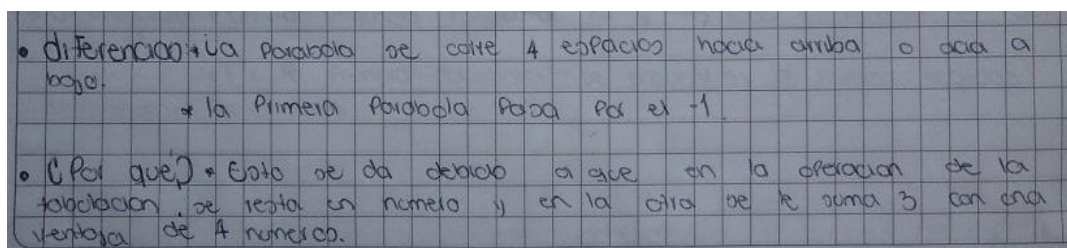 • diferencias * La Parabola se corre 4 espacios hacia arriba o acia a
bajo.
* la Primera Parabola Pasa Por el -1
• ¿Por qué? • Esto se da debido a que en la operacion de la
se resta un numero y en la otra se le suma 3 con una
ventaja de 4 numeros.